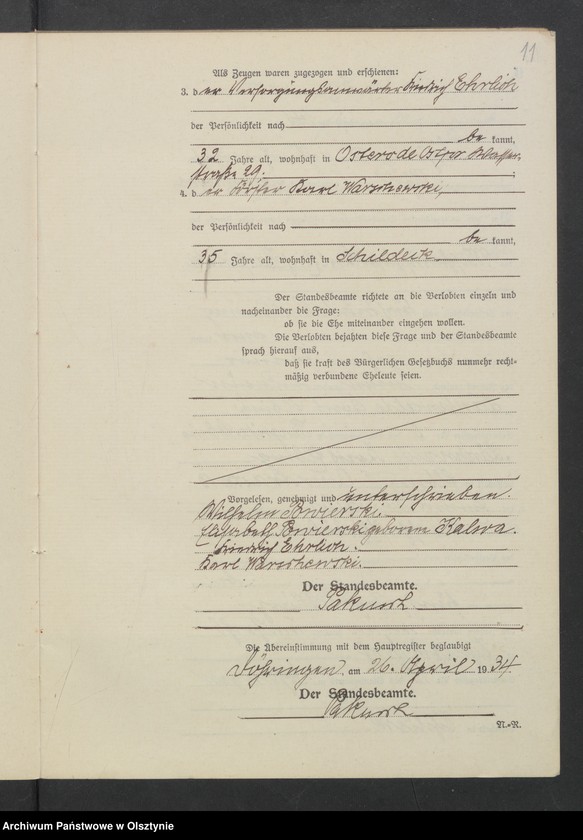 11
Als Zeugen waren zugezogen und erschienen:
3. der Versorgungsanwärter Friedrich Ehrlich
der Persönlichkeit nach
be kannt,
32 Jahre alt, wohnhaft in Osterode Ostpr.
straße 29.
4. der Förster Karl
der Persönlichkeit nach
be kannt,
35 Jahre alt, wohnhaft in Schildeck
Der Standesbeamte richtete an die Verlobten einzeln und
nacheinander die Frage:
ob sie die Ehe miteinander eingehen wollen.
Die Verlobten bejahten diese Frage und der Standesbeamte
sprach hierauf aus,
daß sie kraft des Bürgerlichen Gesetzbuchs nunmehr recht-
mäßig verbundene Eheleute seien.
Vorgelesen, genehmigt und unterschrieben.
Wilhelm
Elisabeth geborene Kalwa.
Friedrich Ehrlich.
Karl
Der Standesbeamte.
Die Übereinstimmung mit dem Hauptregister beglaubigt
Döhringen am 26. April 1934.
Der Standesbeamte.
N.-R.
Archiwum Państwowe w Olsztynie